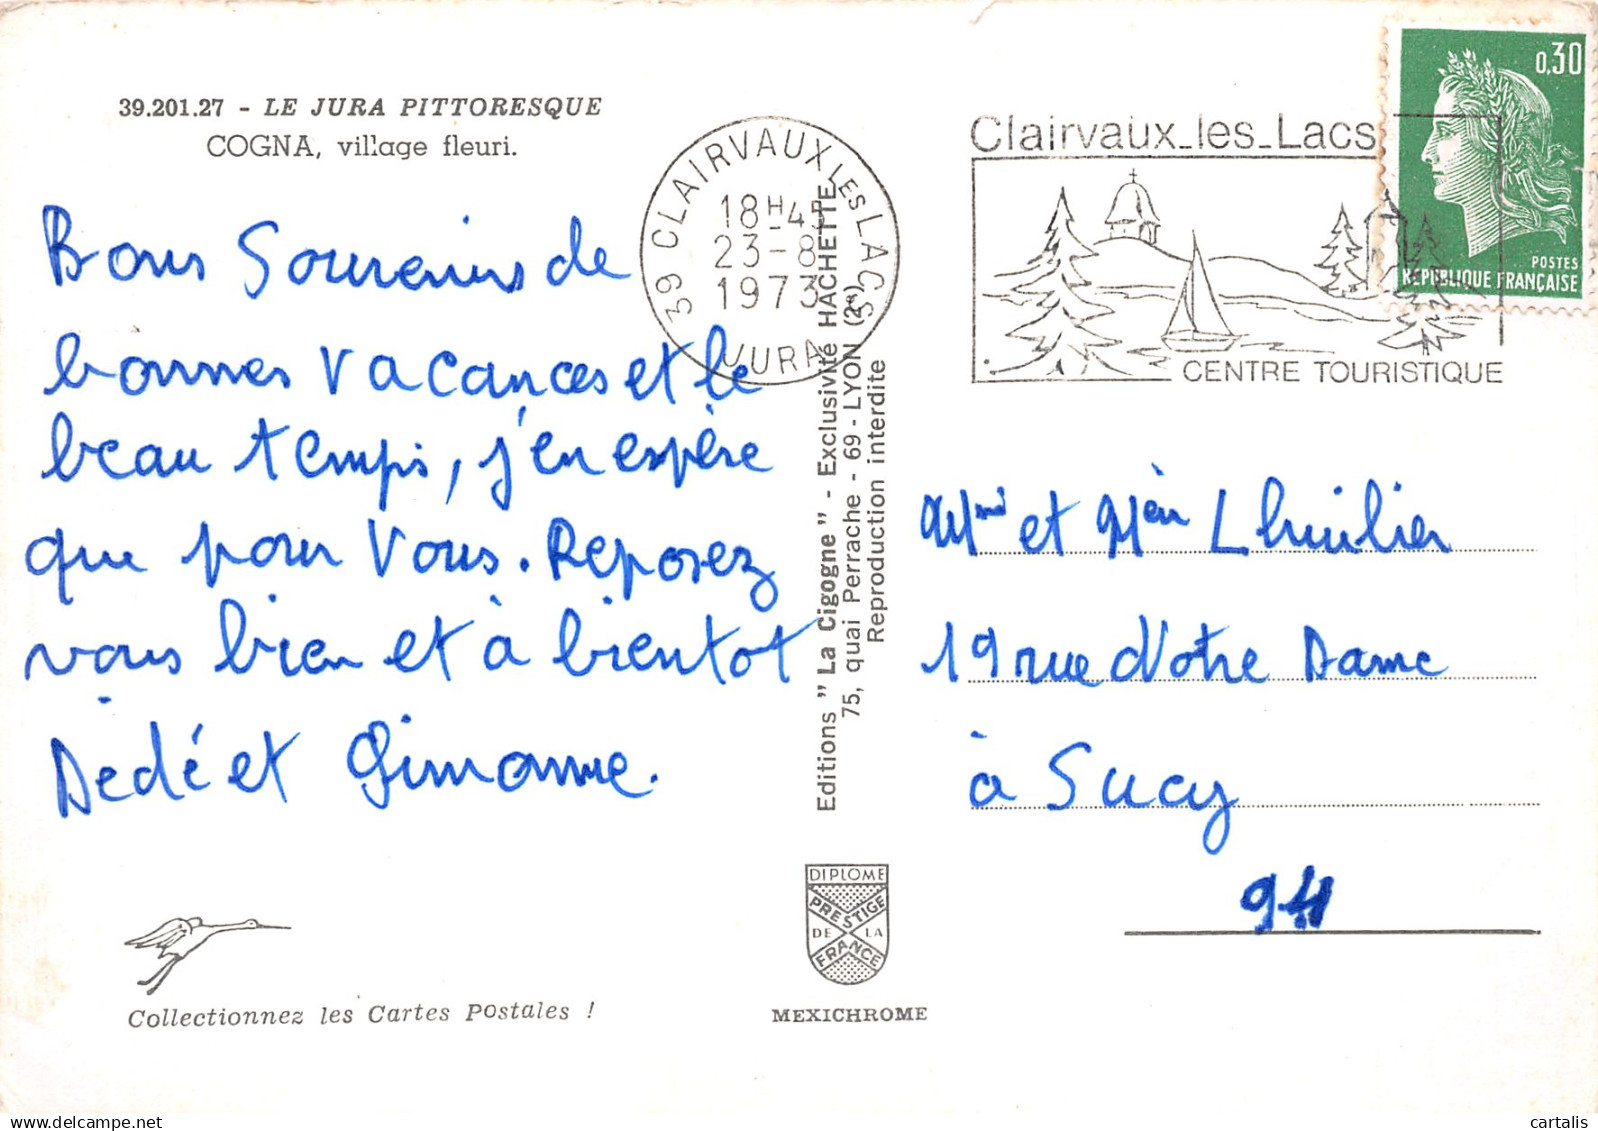 39.201.27 - LE JURA PITTORESQUE
COGNA, village fleuri.
Bons Souvenirs de
bonnes vacances et le
beau temps, j'en espère
que pour Vous. Reposez
vous bien et à bientot
Dedé et Simonne.
Collectionnez les Cartes Postales !
39 CLAIRVAUX LES LACS
18H45
23-8
1973
JURA
Editions "La Cigogne" - Exclusivité HACHETTE
75, quai Perrache - 69 - LYON (2e)
Reproduction interdite
DIPLOME
PRESTIGE
DE LA
FRANCE
MEXICHROME
Clairvaux-les-Lacs
CENTRE TOURISTIQUE
0,30
POSTES
REPUBLIQUE FRANÇAISE
et Lhuilier
19 rue Notre Dame
à Sucy
94
cartalis